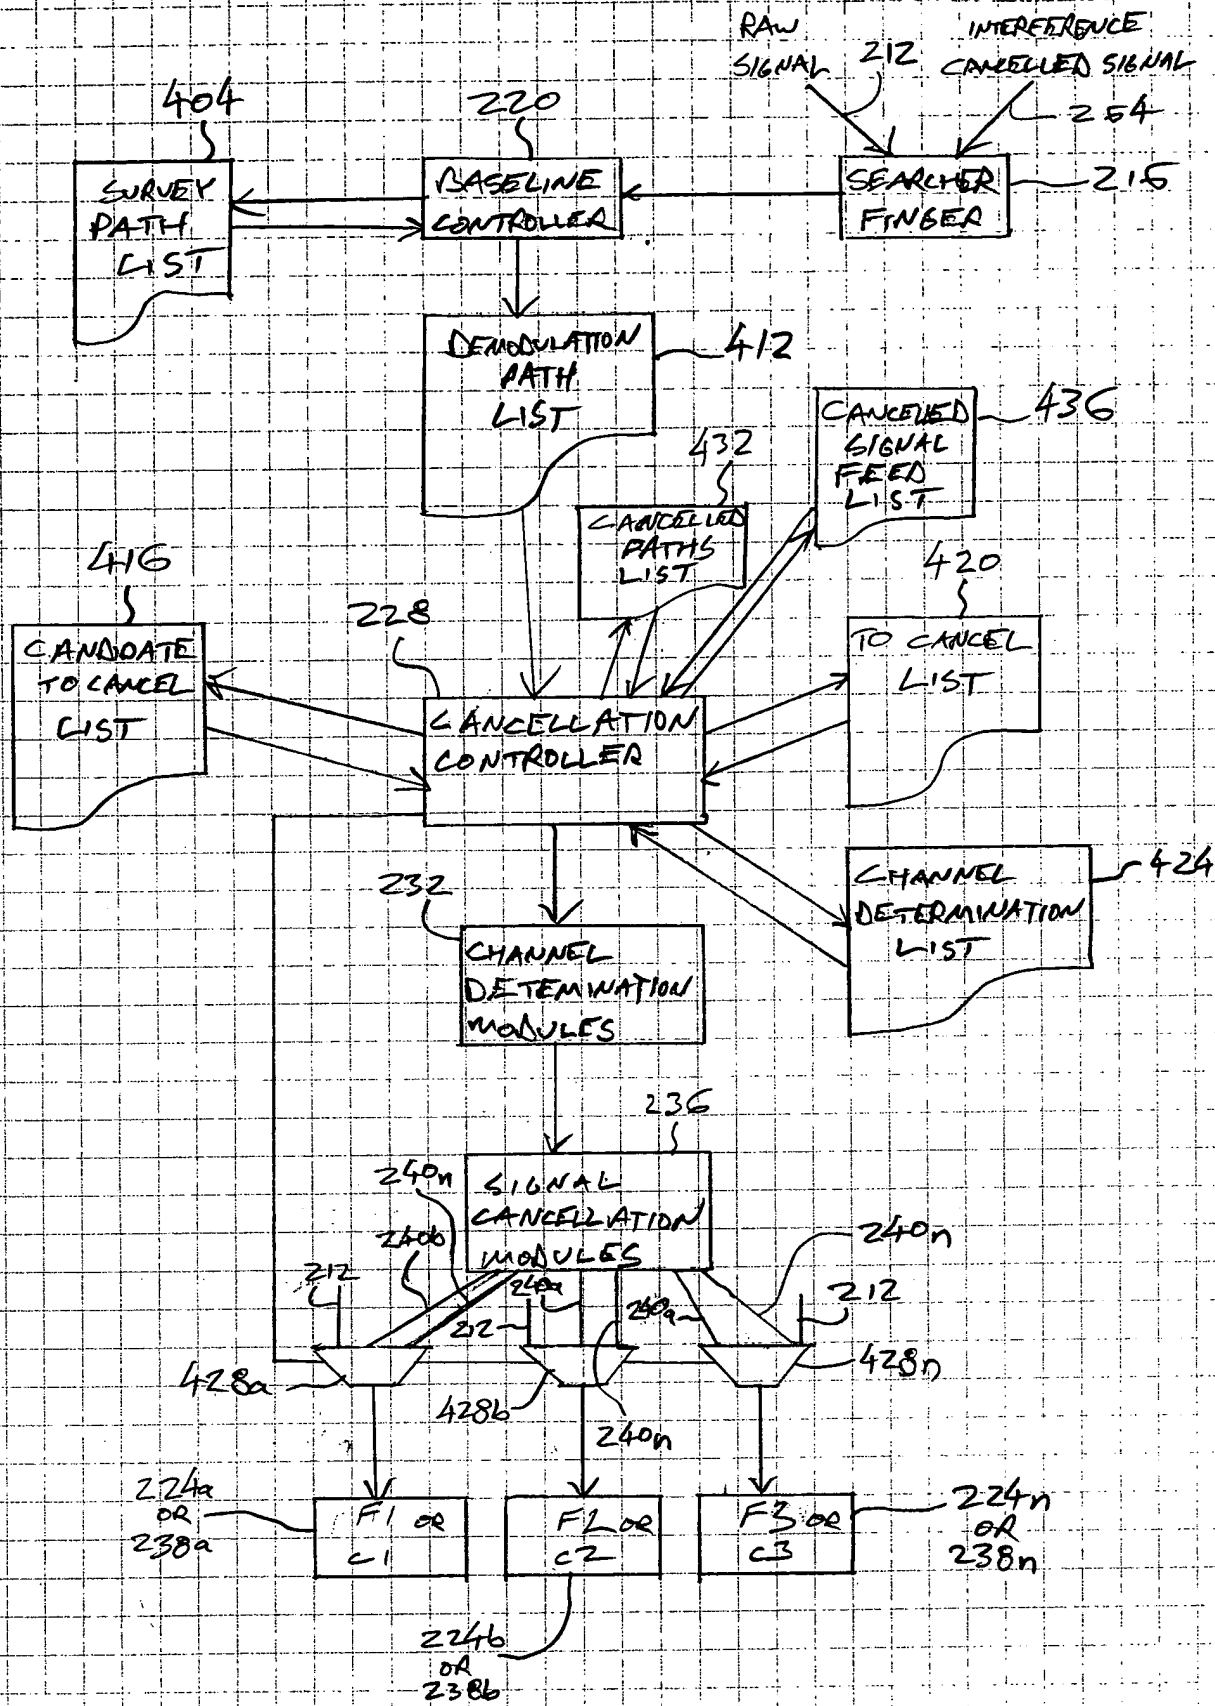 RAW
SIGNAL
212
INTERFERENCE
CANCELLED SIGNAL
254
404
220
SURVEY
PATH
LIST
BASELINE
CONTROLLER
SEARCHER
FINGER
216
DEMODULATION
PATH
LIST
412
CANCELLED
SIGNAL
FEED
LIST
436
432
CANCELLED
PATHS
LIST
416
420
228
CANDIDATE
TO CANCEL
LIST
TO CANCEL
LIST
CANCELLATION
CONTROLLER
232
CHANNEL
DETERMINATION
LIST
424
CHANNEL
DETEMINATION
MODULES
236
240n
SIGNAL
CANCELLATION
MODULES
240b
240n
212
240a
212
240a
212
428a
428b
428n
240n
224a
OR
238a
F1 OR
C1
F2 OR
C2
F3 OR
C3
224n
OR
238n
224b
OR
238b